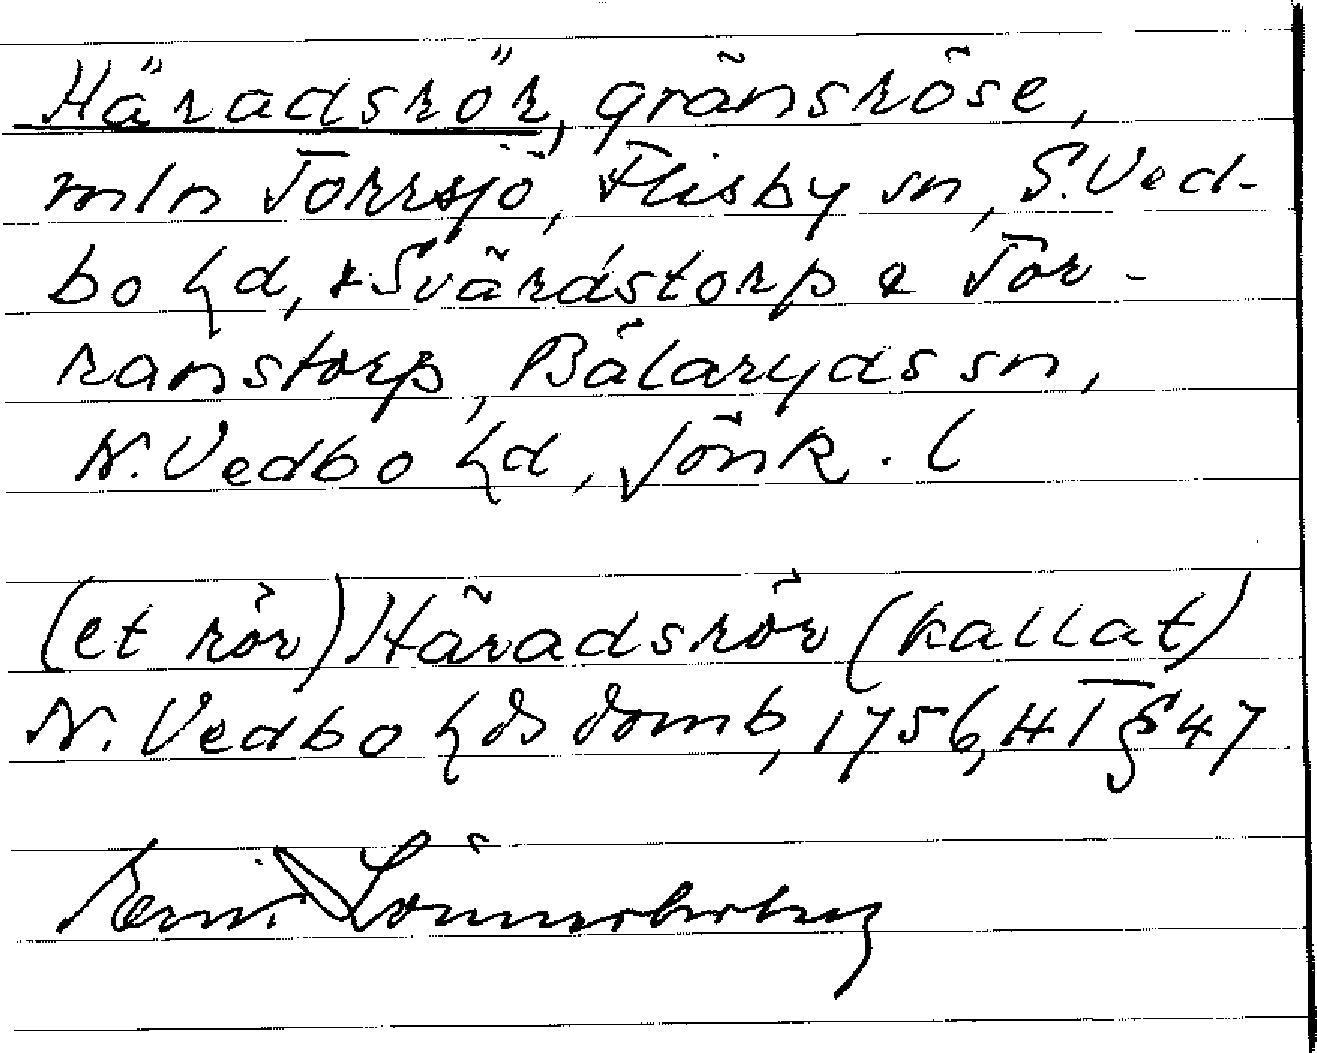 Häradsrör, gränsröse,
mln Torrsjö, Flisby sn, S. Ved-
bo hd, + Svärdstorp & Tor-
ranstorp, Bälaryds sn,
N. Vedbo hd, Jönk. l
(et rör) Häradsrör (kallat)
N. Vedbo hds domb, 1756, HT § 47
Lönnerberg